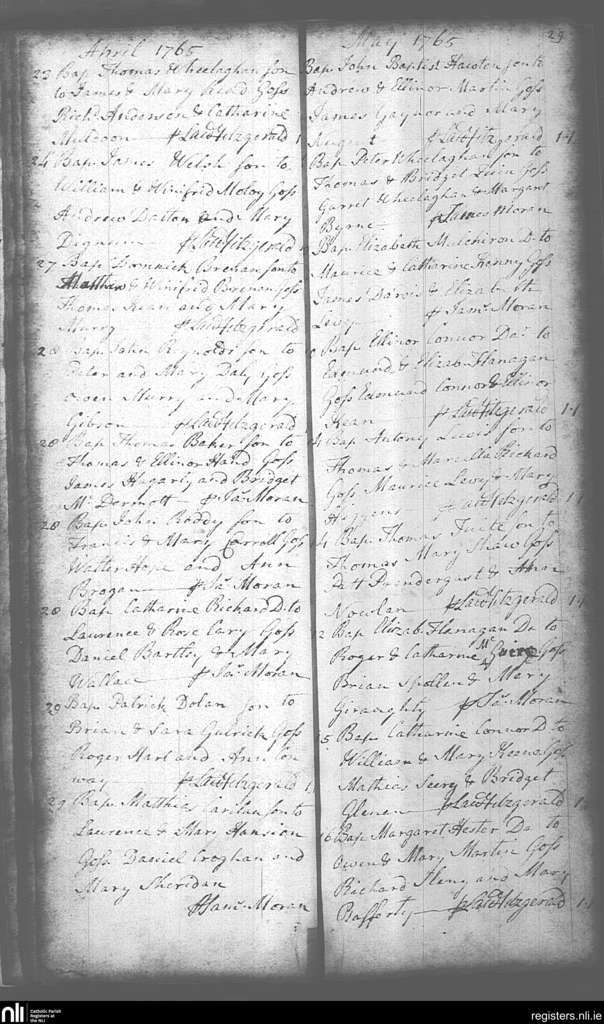 April 1765
23 Bap. Thomas Wheelaghan son
to James & Mary Read Goss
Richd Anderson & Catharine
Muldoon p Laud Fitzgerald 1
24 Bap. James Welsh son to
William & Winifrid Moloy Goss
Andrew Dalton and Mary
Dignum p Laud Fitzgerald
27 Bap. Dominick Brenan son to
Matthew & Winifrid Brenan Goss
Thomas Kean and Mary
Murry p Laud Fitzgerald
28 Bap. John Reynolds son to
Peter and Mary Daly Goss
Owen Murry and Mary
Gibson p Laud Fitzgerald
28 Bap. Thomas Baker son to
Thomas & Ellinor Hand Goss
James Hagarty and Bridget
Mc Dermott p Jas Moran
28 Bap. John Roddy son to
Francis & Mary Carroll Goss
Walter Hope and Ann
Brogan p Jas Moran
28 Bap. Catharine Richard D. to
Laurence & Rose Cary Goss
Daniel Bartley & Mary
Wallace p Jas Moran
29 Bap. Patrick Dolan son to
Brian & Sara Gulrick Goss
Roger Harl and Ann Con
way p Laud Fitzgerald 1
29 Bap. Matthias Carilan son to
Laurence & Mary Hansion
Goss. Daniel Croghan and
Mary Sheridan
p Jams Moran
May 1765 29
Bap. John Baptist Hawten son to
Andrew & Ellinor Martin Goss
James Gaynor and Mary
p Laud Fitzgerald 1-1
Bap. Peter Wheelaghan son to
Thomas & Bridget Goss
Garret Wheelaghan & Margaret
Byrne p James Moran
Bap. Elizabeth Mulchiron D. to
Maurice & Catharine Kenny Goss
James Darcis & Elizabeth
Levy p Jams Moran
Bap. Ellinor Connor Da. to
Edmund & Elizab. Flanagan
Goss Edmund Connor & Ellinor
Kean p Laud Fitzgerald 1-1
Bap. Antony Lewis son to
Thomas & Marcella Richard
Goss Maurice Levy & Mary
Higgens p Laud Fitzgerald 1-1
4 Bap. Thomas Tuite son to
Thomas Mary Shaw Goss
Patt Prendergast & Anne
Nowlan p Laud Fitzgerald 1-1
2 Bap. Elizab. Flanagan Da. to
Roger & Catharine Mc Goss
Brian Spollen & Mary
Giraughty p Jas Moran
5 Bap. Catharine Connor D. to
William & Mary Keena Goss
Mathias Seery & Bridget
Glenen p Laud Fitzgerald 1-
16 Bap. Margaret Hester Da. to
Owen & Mary Martin Goss
Richard and Mary
Rafferty p Laud Fitzgerald 1-1
nli Catholic Parish
Registers at
the NLI
registers.nli.ie